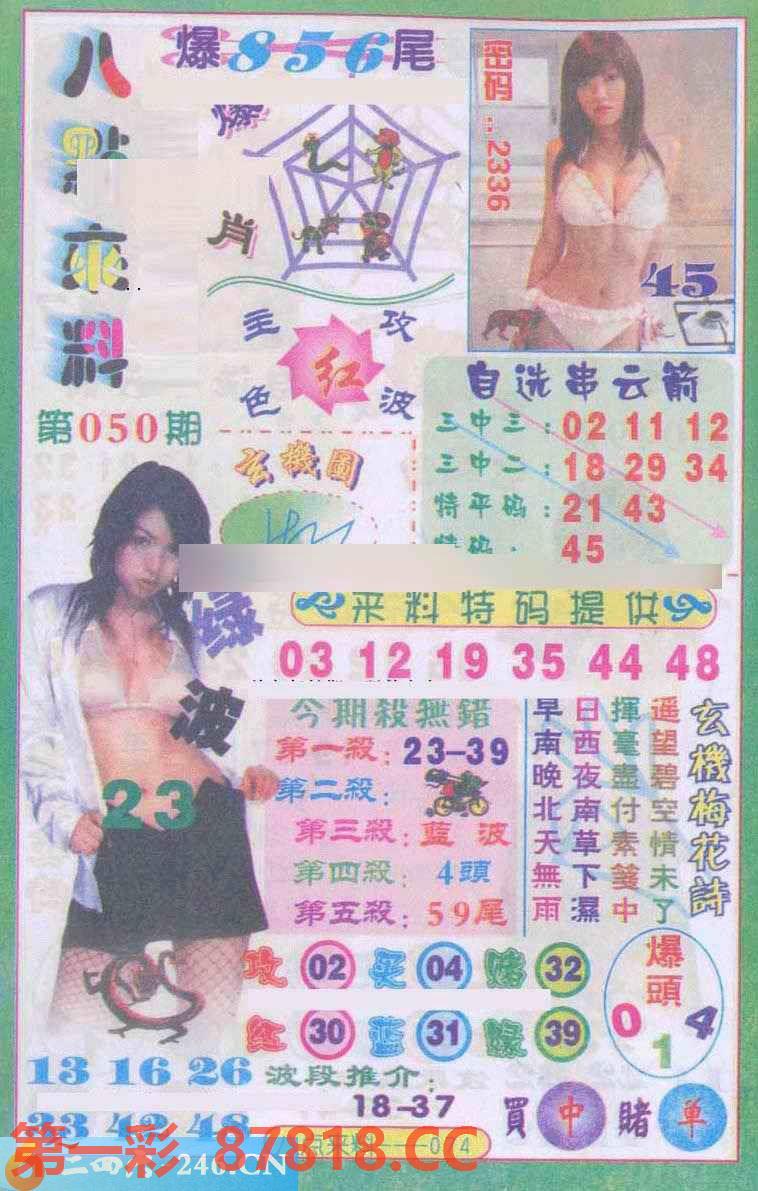 八點來料
爆856尾
爆肖
密码:2336
45
主攻
红
色波
第050期
自选串云箭
三中三:02 11 12
三中二:18 29 34
特平码:21 43
特码:45
玄機圖
来料特码提供
03 12 19 35 44 48
绿波
23
今期殺無錯
第一殺:23-39
第二殺:
第三殺:藍波
第四殺:4頭
第五殺:59尾
玄機梅花詩
遥望碧空情未了
揮毫盡付素箋中
日西夜南草下濕
早南晚北天無雨
攻 02 买 04 赌 32
红 30 蓝 31 緑 39
爆頭
0 1 4
13 16 26
33 42 48
波段推介:
18-37
買中賭单
第一彩 87818.CC
246.CN